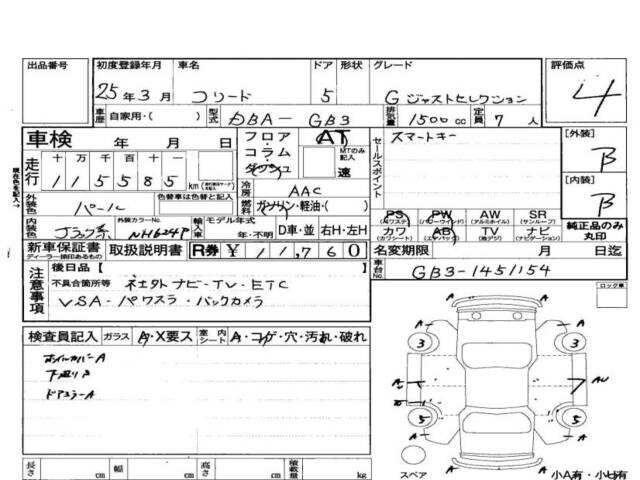 出品番号 初度登録年月 車名 ドア 形状 グレード 評価点
25年3月 フリード 5 G ジャストセレクション 4
車歴 自家用・( ) 型式 DBA- GB3 排気量 1500cc 定員 7人
車検 年 月 日 フロア・コラム・ダッシュ AT MTのみ記入 速 セールスポイント スマートキー [外装] B
走行 十万千百十 115585 km
冷房 AAC [内装] B
外装色 パール 色替車は色替と記入 燃料 ガソリン・軽油・( )
PS (パワステ) PW (パワーウインド) AW (アルミホイル) SR (サンルーフ)
内装色 ブラック系 外装カラーNo. NH624P 輸入車 モデル年式 年・不明 D車・並 右H・左H カワ (カワシート) AB (エアバッグ) TV (地デジ) ナビ (ナビゲーション) 純正品のみ丸印
新車保証書 ディーラー捺印あるもの 取扱説明書 R券 ¥11,760 名変期限 月 日迄
注意事項 後日品[ ] 車台No. GB3-1451154
不具合箇所等 ナビ-TV-ETC
VSA-パワスラ・バックカメラ
現在色を記入→
ロック車
検査員記入 ガラス A・X要ス 室内シート A・コゲ・穴・汚れ・破れ
ホイルカバーA
下廻りサ
ドアミラーA
A A
3 3
A
5 5
A A
スペア 小A有・小U有
長さ cm 幅 cm 高さ cm 積載量 kg